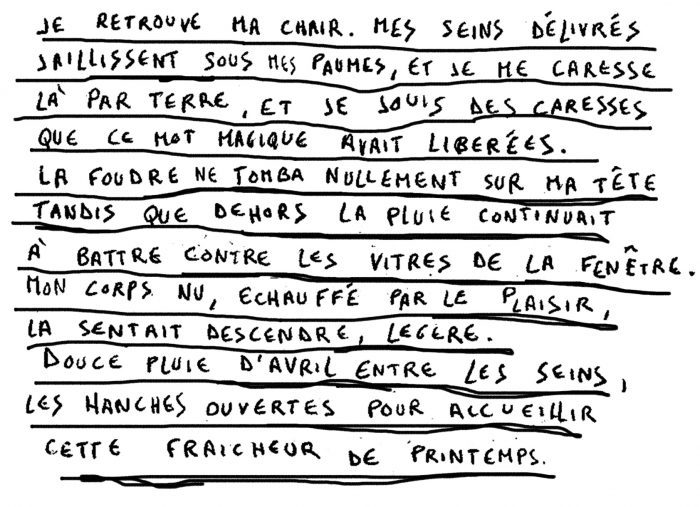 JE RETROUVE MA CHAIR. MES SEINS DÉLIVRÉS
JAILLISSENT SOUS MES PAUMES, ET JE ME CARESSE
LÀ PAR TERRE, ET JE JOUIS DES CARESSES
QUE CE MOT MAGIQUE AVAIT LIBERÉES.
LA FOUDRE NE TOMBA NULLEMENT SUR MA TÊTE
TANDIS QUE DEHORS LA PLUIE CONTINUAIT
À BATTRE CONTRE LES VITRES DE LA FENÊTRE.
MON CORPS NU, ECHAUFFÉ PAR LE PLAISIR,
LA SENTAIT DESCENDRE, LEGÈRE.
DOUCE PLUIE D'AVRIL ENTRE LES SEINS,
LES HANCHES OUVERTES POUR ACCUEILLIR
CETTE FRAICHEUR DE PRINTEMPS.